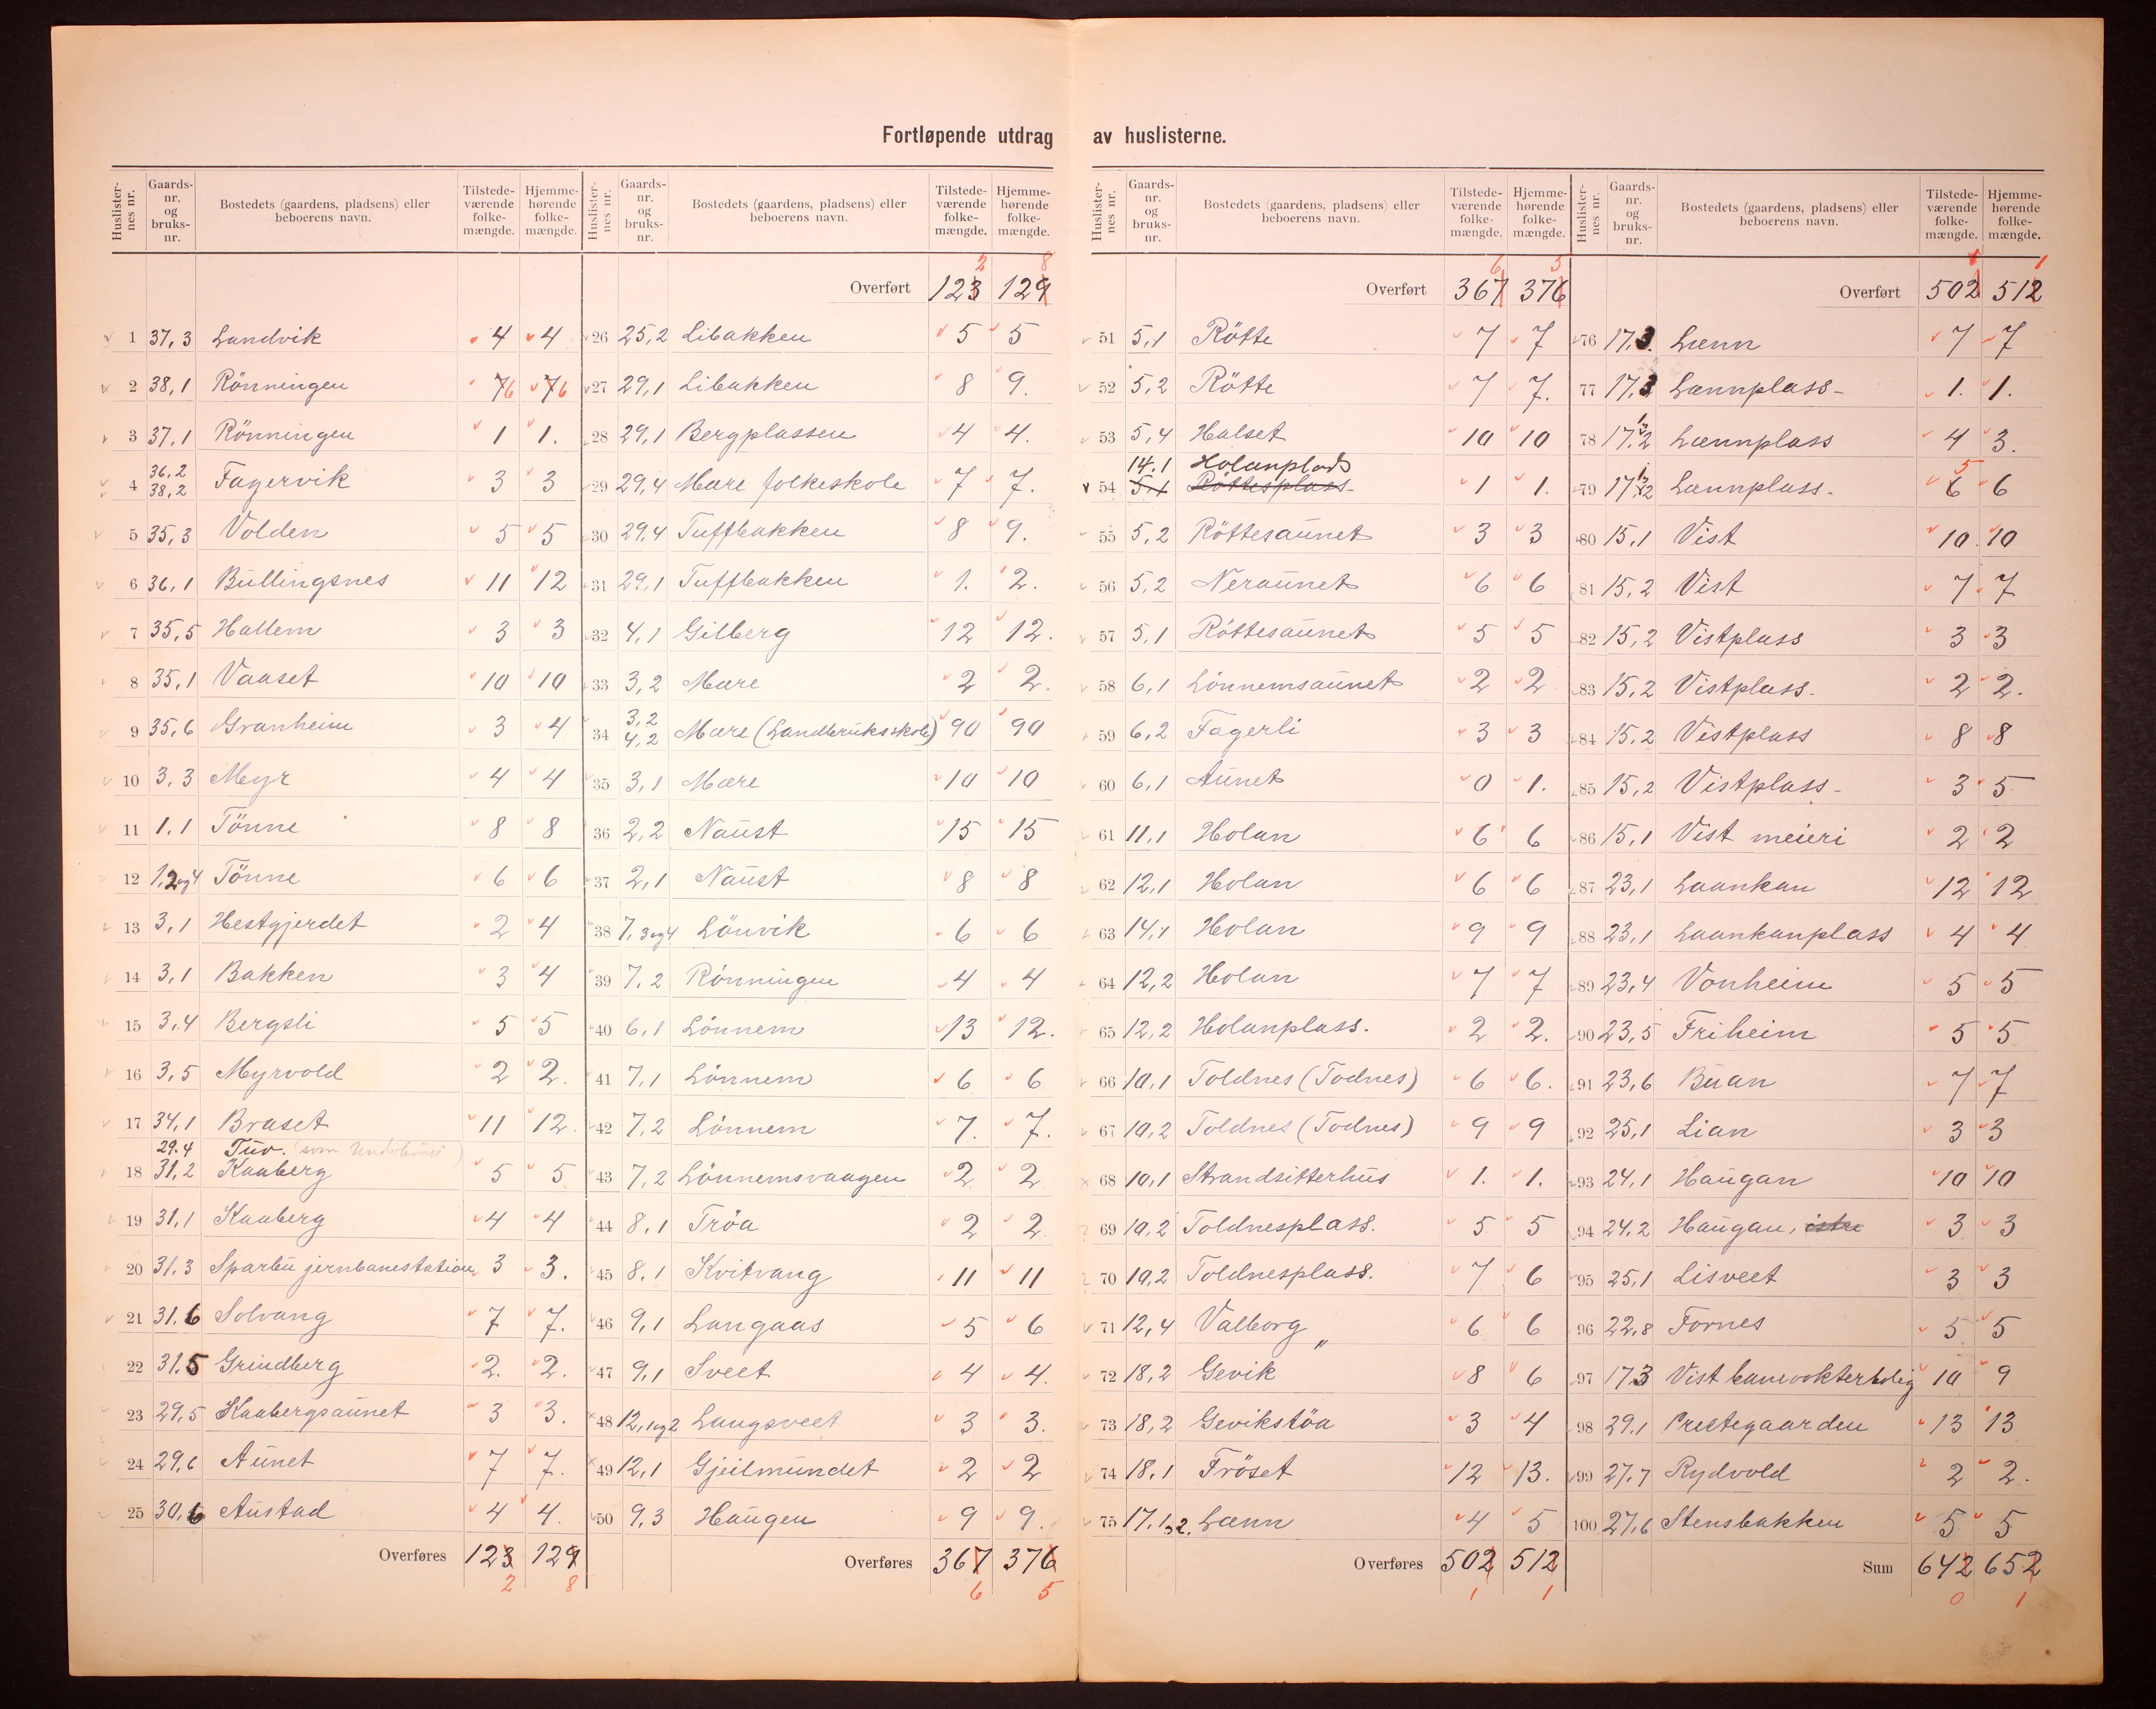 Fortløpende utdrag av huslisterne.
Huslister-nes nr. Gaards-nr. og bruks-nr. Bostedets (gaardens, pladsens) eller beboerens navn. Tilstede-værende folke-mængde. Hjemme-hørende folke-mængde.
1 37,3 Landvik 4 4
2 38,1 Rönningen 7 6 7 6
3 37,1 Rönningen 1 1.
4 36,2 38,2 Fagervik 3 3
5 35,3 Volden 5 5
6 36,1 Büllingsnes 11 12
7 35,5 Hallem 3 3
8 35,1 Vaaset 10 10
9 35,6 Granheim 3 4
10 3,3 Myr 4 4
11 1,1 Tönne 8 8
12 1,2og4 Tönne 6 6
13 3,1 Hestgjerdet 2 4
14 3,1 Bakken 3 4
15 3,4 Bergsli 5 5
16 3,5 Myrvold 2 2.
17 34,1 Braset 11 12.
29.4 Tüv.
18 31,2 Kaaberg 5 5
19 31,1 Kaaberg 4 4
20 31.3 Sparbü jernbanestation 3 3.
21 31.6 Solvang 7 7.
22 31.5 Grindberg 2. 2.
23 29,5 Kaabergsaünet 3 3.
24 29,6 Aünet 7 7.
25 30,6 Aüstad 4 4.
Overføres 123 129
2 8
Huslister-nes nr. Gaards-nr. og bruks-nr. Bostedets (gaardens, pladsens) eller beboerens navn. Tilstede-værende folke-mængde. Hjemme-hørende folke-mængde.
2 8
Overført 123 129
26 25,2 Libakken 5 5
27 29,1 Libakken 8 9.
28 29,1 Bergplassen 4 4.
29 29,4 Mære folkeskole 7 7.
30 29,4 Tuffbakken 8 9.
31 29,1 Tuffbakken 1. 2.
32 4,1 Gilberg 12 12.
33 3,2 Mære 2 2.
34 3,2 4,2 Mære (Landbrüksskole) 90 90
35 3,1 Mære 10 10
36 2,2 Naüst 15 15
37 2,1 Naüst 8 8
38 7,3og4 Lönvik 6 6
39 7,2 Rönningen 4 4
40 6,1 Lönnem 13 12.
41 7,1 Lönnem 6 6
42 7,2 Lönnem 7. 7.
43 7,2 Lönnemsvaagen 2 2
44 8,1 Tröa 2 2
45 8,1 Kvitvang 11 11
46 9,1 Langaas 5 6
47 9,1 Sveet 4 4.
48 12,1og2 Langsveet 3 3.
49 12,1 Gjeilmündet 2 2
50 9,3 Haügen 9 9.
Overføres 367 376
6 5
Huslister-nes nr. Gaards-nr. og bruks-nr. Bostedets (gaardens, pladsens) eller beboerens navn. Tilstede-værende folke-mængde. Hjemme-hørende folke-mængde.
6 5
Overført 367 376
51 5,1 Rötte 7 7
52 5,2 Rötte 7 7.
53 5,4 Halset 10 10
14.1 Holanplads
54 5,1 Röttesplass 1 1.
55 5,2 Röttesaünet 3 3
56 5,2 Neraünet 6 6
57 5,1 Röttesaünet 5 5
58 6,1 Lönnemsaünet 2 2
59 6,2 Fagerli 3 3
60 6,1 Aünet 0 1.
61 11,1 Holan 6 6
62 12,1 Holan 6 6
63 14,1 Holan 9 9
64 12,2 Holan 7 7
65 12,2 Holanplass. 2 2.
66 10,1 Toldnes (Todnes) 6 6.
67 10,2 Toldnes (Todnes) 9 9
68 10,1 Strandsitterhüs 1. 1.
69 10,2 Toldnesplass. 5 5
70 10,2 Toldnesplass. 7 6
71 12,4 Valborg „ 6 6
72 18,2 Gevik 8 6
73 18,2 Gevikstöa 3 4
74 18,1 Fröset 12 13.
75 17,1 2. Lænn 4 5
Overføres 502 512
1 1
Huslister-nes nr. Gaards-nr. og bruks-nr. Bostedets (gaardens, pladsens) eller beboerens navn. Tilstede-værende folke-mængde. Hjemme-hørende folke-mængde.
1 1
Overført 502 512
76 17,3. Lænn 7 7
77 17,3 Lænnplass- 1. 1.
78 17,2 Lænnplass 4 3.
79 17,2 Lænnplass. 6 5 6
80 15,1 Vist 10 10
81 15,2 Vist 7 7
82 15,2 Vistplass 3 3
83 15,2 Vistplass. 2 2.
84 15,2 Vistplass 8 8
85 15,2 Vistplass- 3 5
86 15,1 Vist meieri 2 2
87 23,1 Laankan 12 12
88 23,1 Laankanplass 4 4
89 23,4 Vonheim 5 5
90 23,5 Friheim 5 5
91 23,6 Büan 7 7
92 25,1 Lian 3 3
93 24,1 Haügan 10 10
94 24,2 Haügan, östre 3 3
95 25,1 Lisveet 3 3
96 22,8 Fornes 5 5
97 17.3 Vist banevokterbolig 10 9
98 29,1 Prestegaarden 13 13
99 27,7 Rydvold 2 2.
100 27,6 Stensbakken 5 5
Sum 642 652
0 1